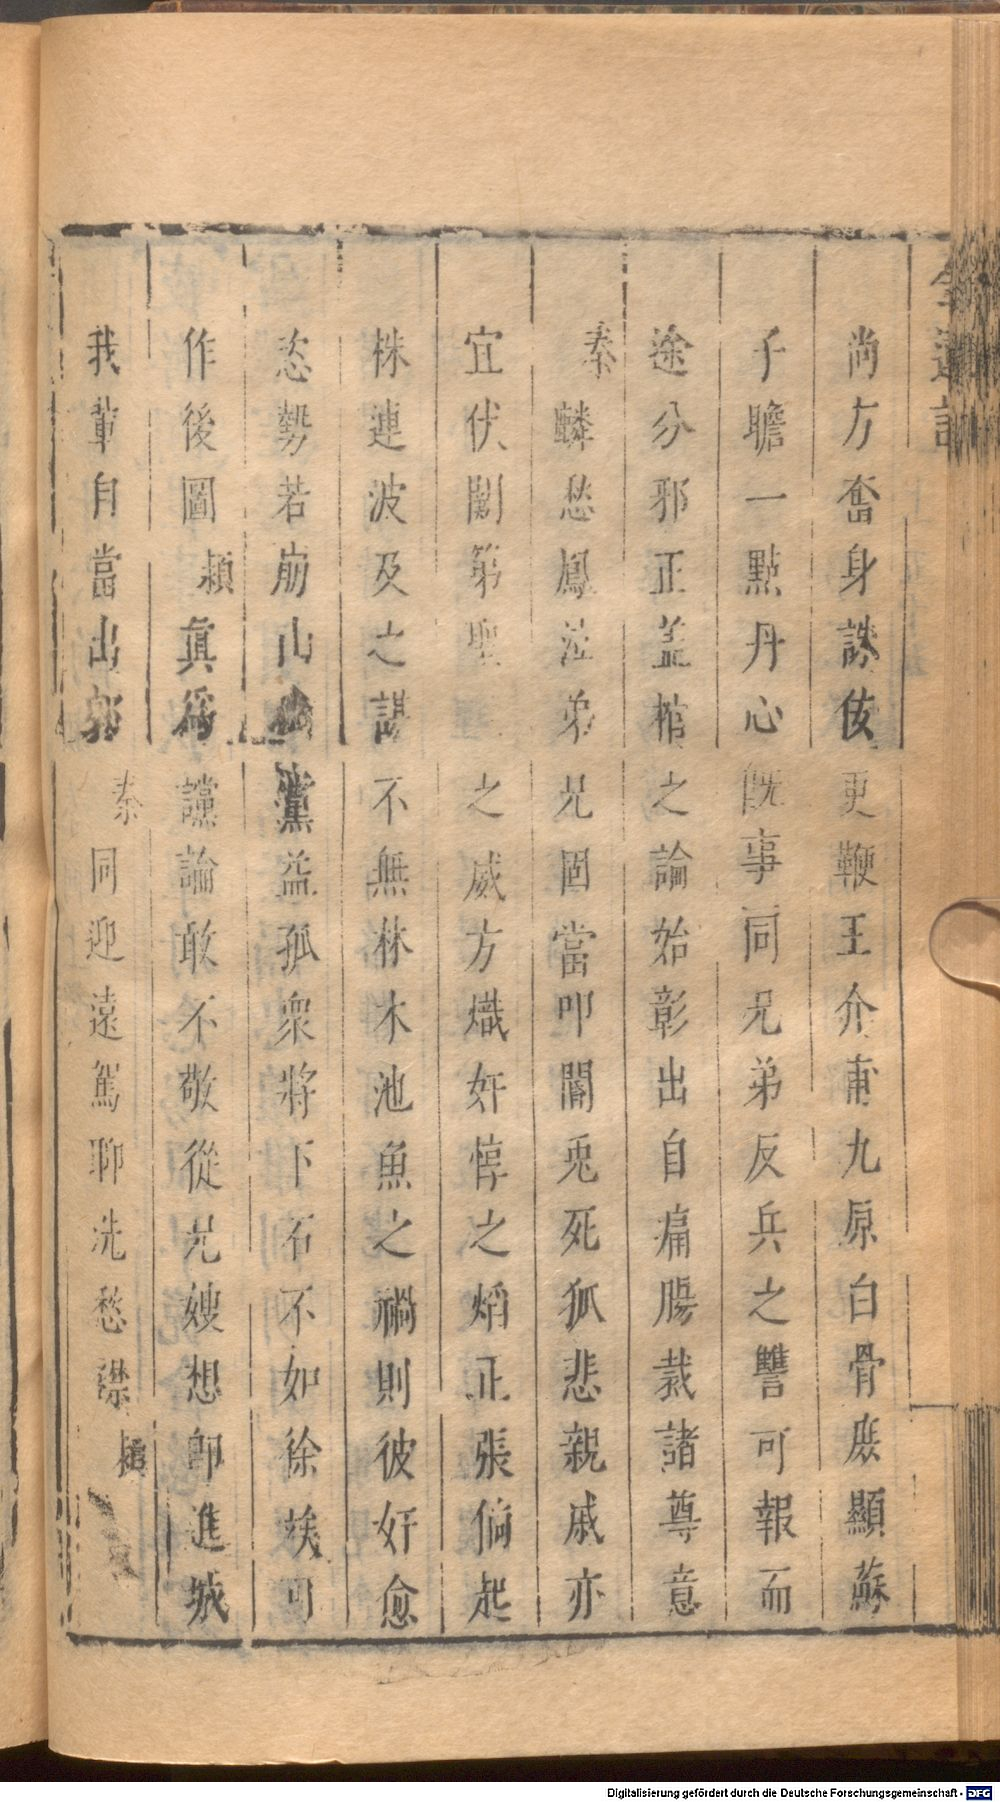 尚方奮身誅佞更鞭王介甫九原白骨庶顯蘇
子瞻一點丹心既事同兄弟反兵之讐可報而
途分邪正盖棺之論始彰出自痛腸裁諸尊意
秦 麟愁鳳泣弟兄固當叩閽兎死狐悲親戚亦
宜伏闕第聖之威方熾奸惇之熖正張倘起
株連波及之謀不無林木池魚之禍則彼奸愈
恣勢若崩山黨益孤衆將下石不如徐俟可
作後圖 穎 眞爲讜論敢不敬從兄嫂想卽進城
我輩自當出郭 秦 同迎遠駕聊洗愁襟
Digitalisierung gefördert durch die Deutsche Forschungsgemeinschaft - DFG